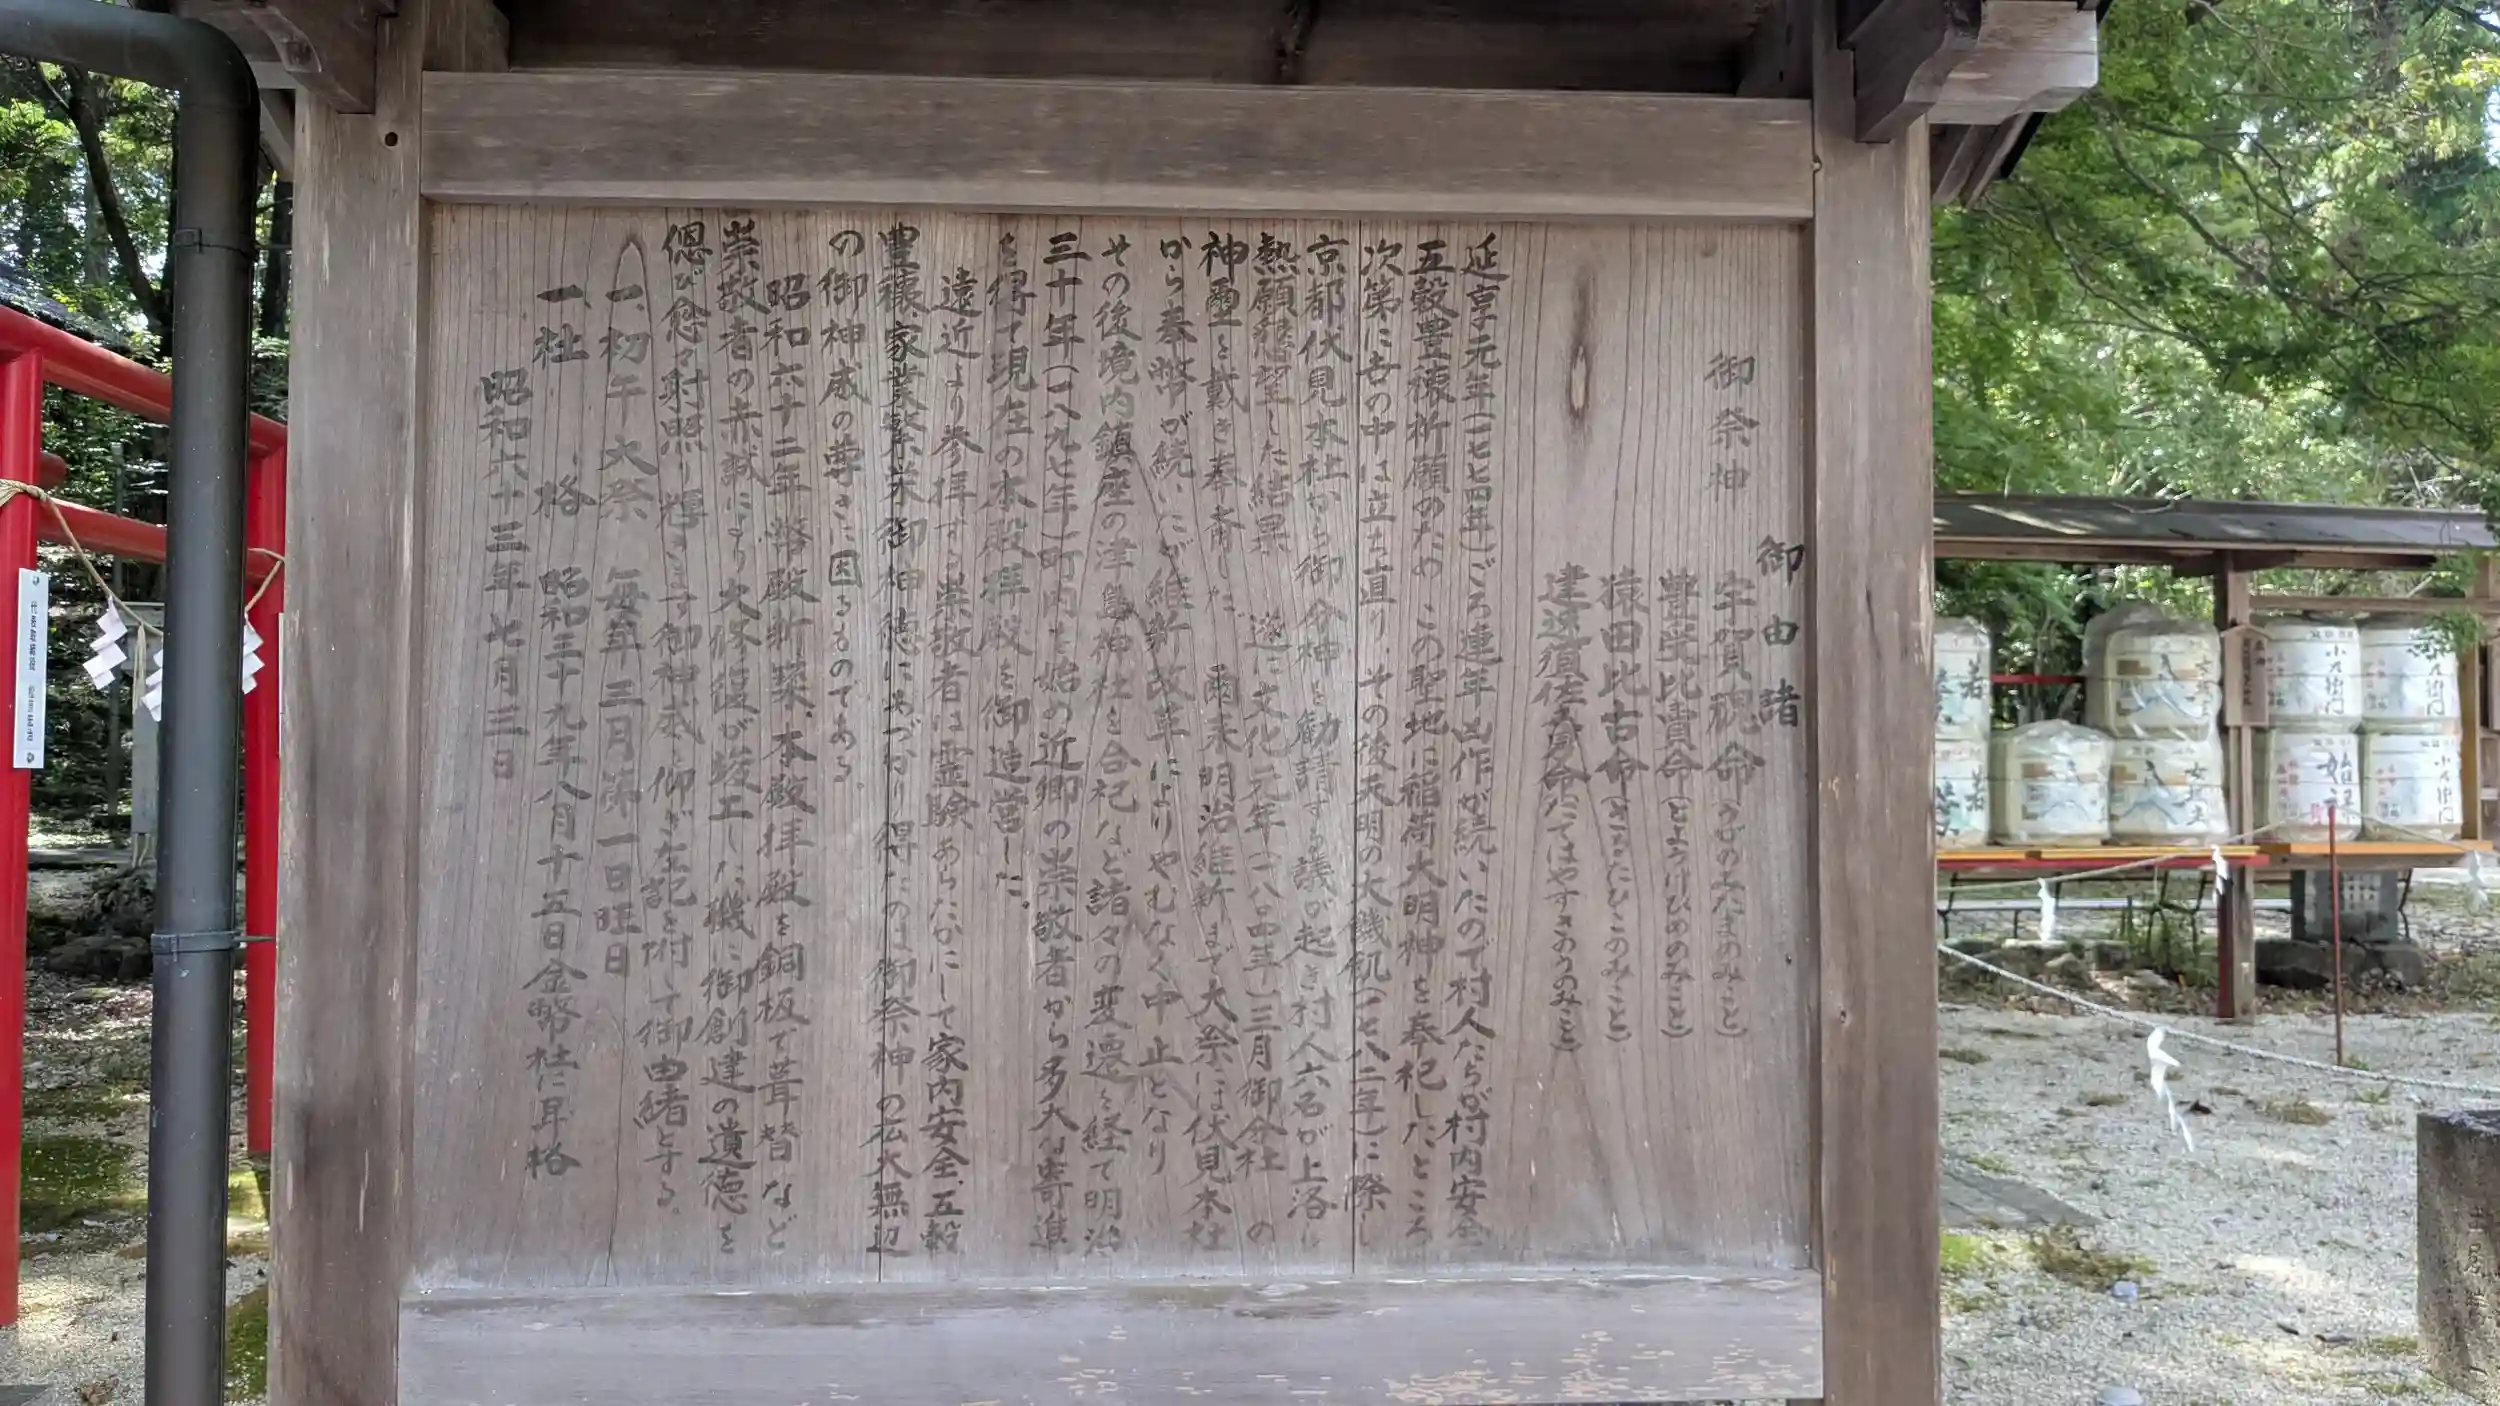 御由諸
御祭神 宇賀魂命(うがのみたまのみこと)
豊受比賣命(とようけびめのみこと)
猿田比古命(さるたひこのみこと)
建速須佐男命(たてはやすさおうのみこと)
延享元年(一七七四年)ごろ連年凶作が続いたので村人たちが村内安全
五穀豊穣祈願のため この聖地に稲荷大明神を奉祀したところ
次第に世の中は立ち直り、その後天明の大饑飢(一七八二年)に際し
京都伏見本社から御分神を勧請する議が起き村人六名が上洛し
熱願懇望した結果 遂に文化元年(一八〇四年)三月御分社の
神璽を戴き奉斎した。 爾来明治維新まで大祭には伏見本社
から奉幣が続いたが 維新改革によりやむなく中止となり
その後境内鎮座の津島神社を合祀など諸々の変遷を経て明治
三十年(一八九七年)町内を始め近郷の崇敬者から多大な寄進
を得て現在の本殿拝殿を御造営した。
遠近より参拝する崇敬者は霊験あらたかにして家内安全、五穀
豊穣、家業繁栄御神徳にあづかり得たのは御祭神の広大無辺
の御神威の尊きに因るものである。
昭和六十二年幣殿新築、本殿拝殿を銅板で葺替など
崇敬者の赤誠により大修復が竣工した機に御創建の遺徳を
偲び愈々射照り輝きます御神威を仰ぎ左記を附して御由緒とする。
一、初午大祭 毎年三月第一日曜日
一、社 格 昭和三十九年八月十五日金幣社に昇格
昭和六十三年七月三日
小左衛門
小左衛門
女城主
女城主
若
若
姫